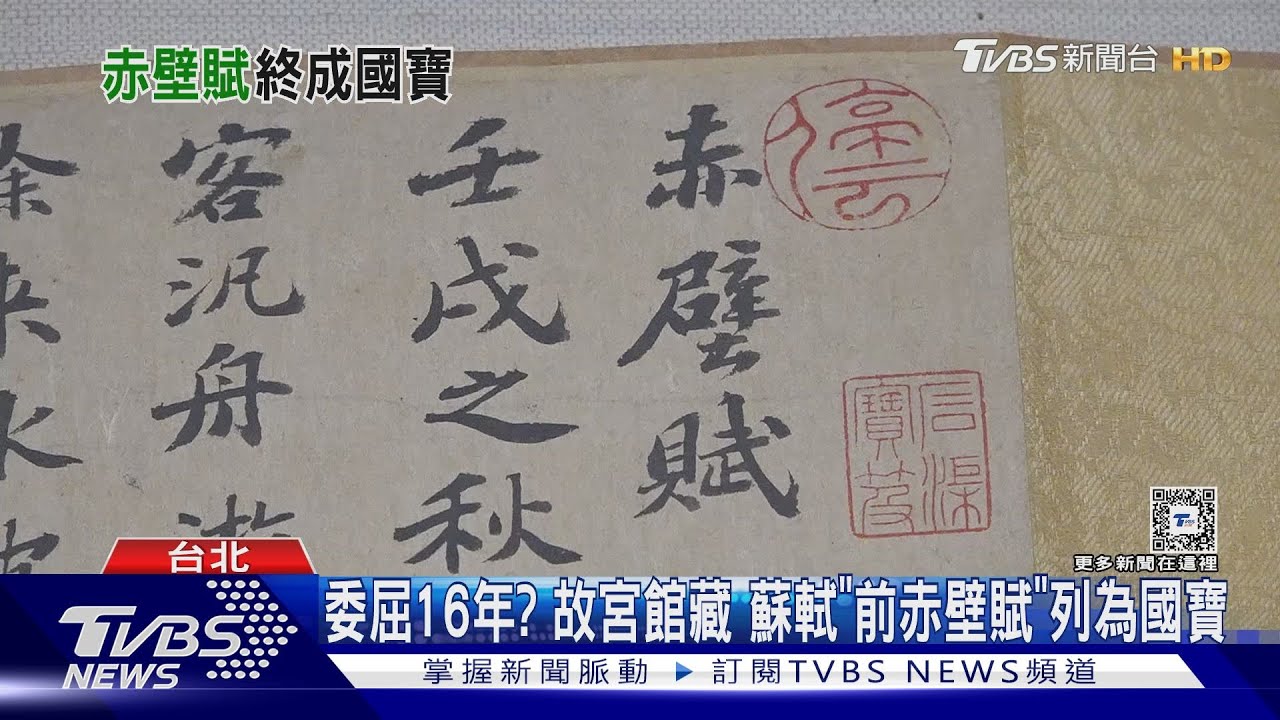 赤壁賦終成國寶
TVBS新聞台 HD
赤壁賦
壬戌之秋
客汎舟游
徐來水波
停雲
更多新聞在這裡
台北
委屈16年? 故宮館藏 蘇軾"前赤壁賦"列為國寶
TVBS NEWS
掌握新聞脈動 ▶ 訂閱TVBS NEWS頻道